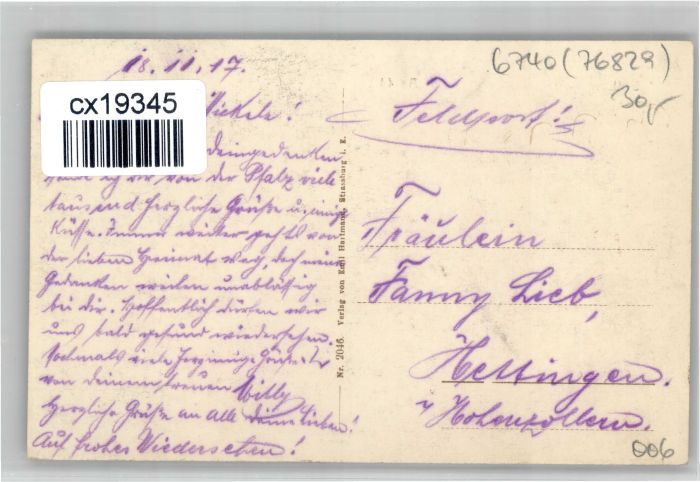 18.11.17.
cx19345
Nickele!
deingedenken
ich dir von der Pfalz viele
tausend herzliche Grüße u. innige
Küsse. Immer weiter gehts von
der lieben Heimat weg, doch meine
Gedanken weilen unablässig
bei dir. Hoffentlich dürfen wir
uns bald gesund wiedersehen.
Nochmals viele herzinnige Grüße
von deinem treuen Willy
Herzliche Grüße an alle deine Lieben!
Auf frohes Wiedersehen!
Nr. 2046. Verlag von Emil Hartmann, Strassburg i. E.
6740 (76829)
30,-
Feldpost!
Fräulein
Fanny Lieb,
Hettingen.
Hohenzollern.
006